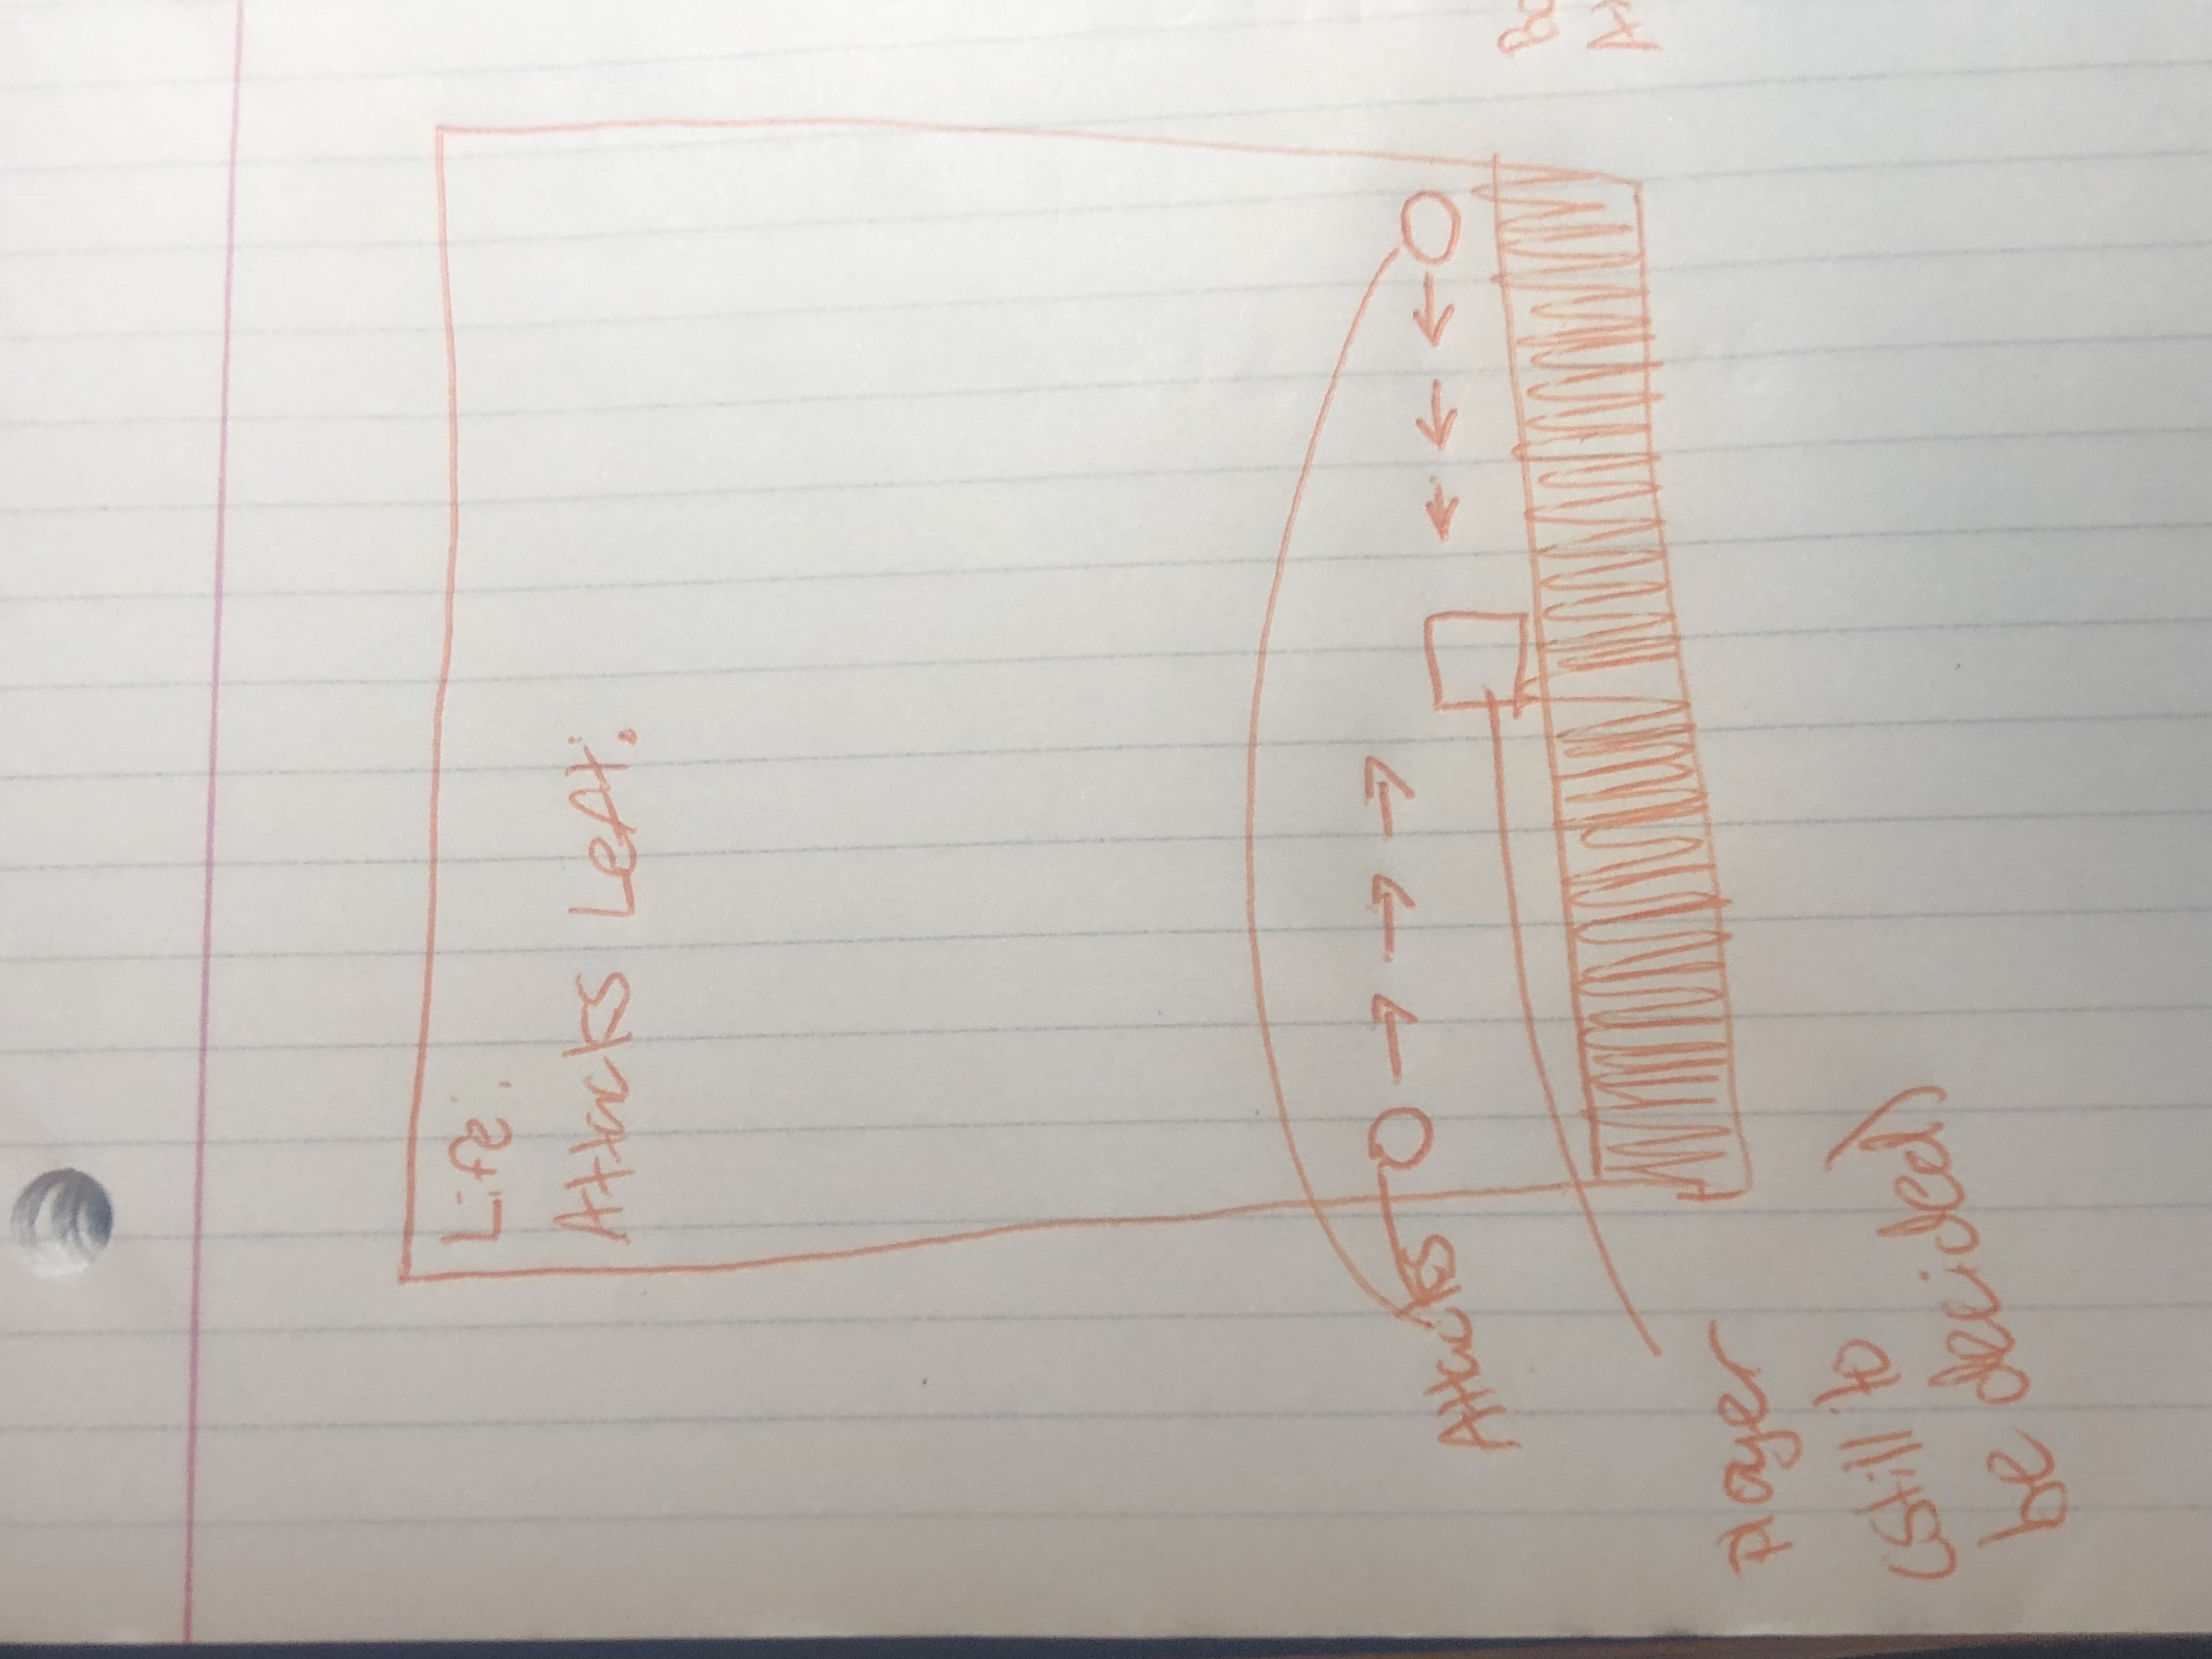 Life:
Attacks Left:
Attacks
Player
(still to
be decided)